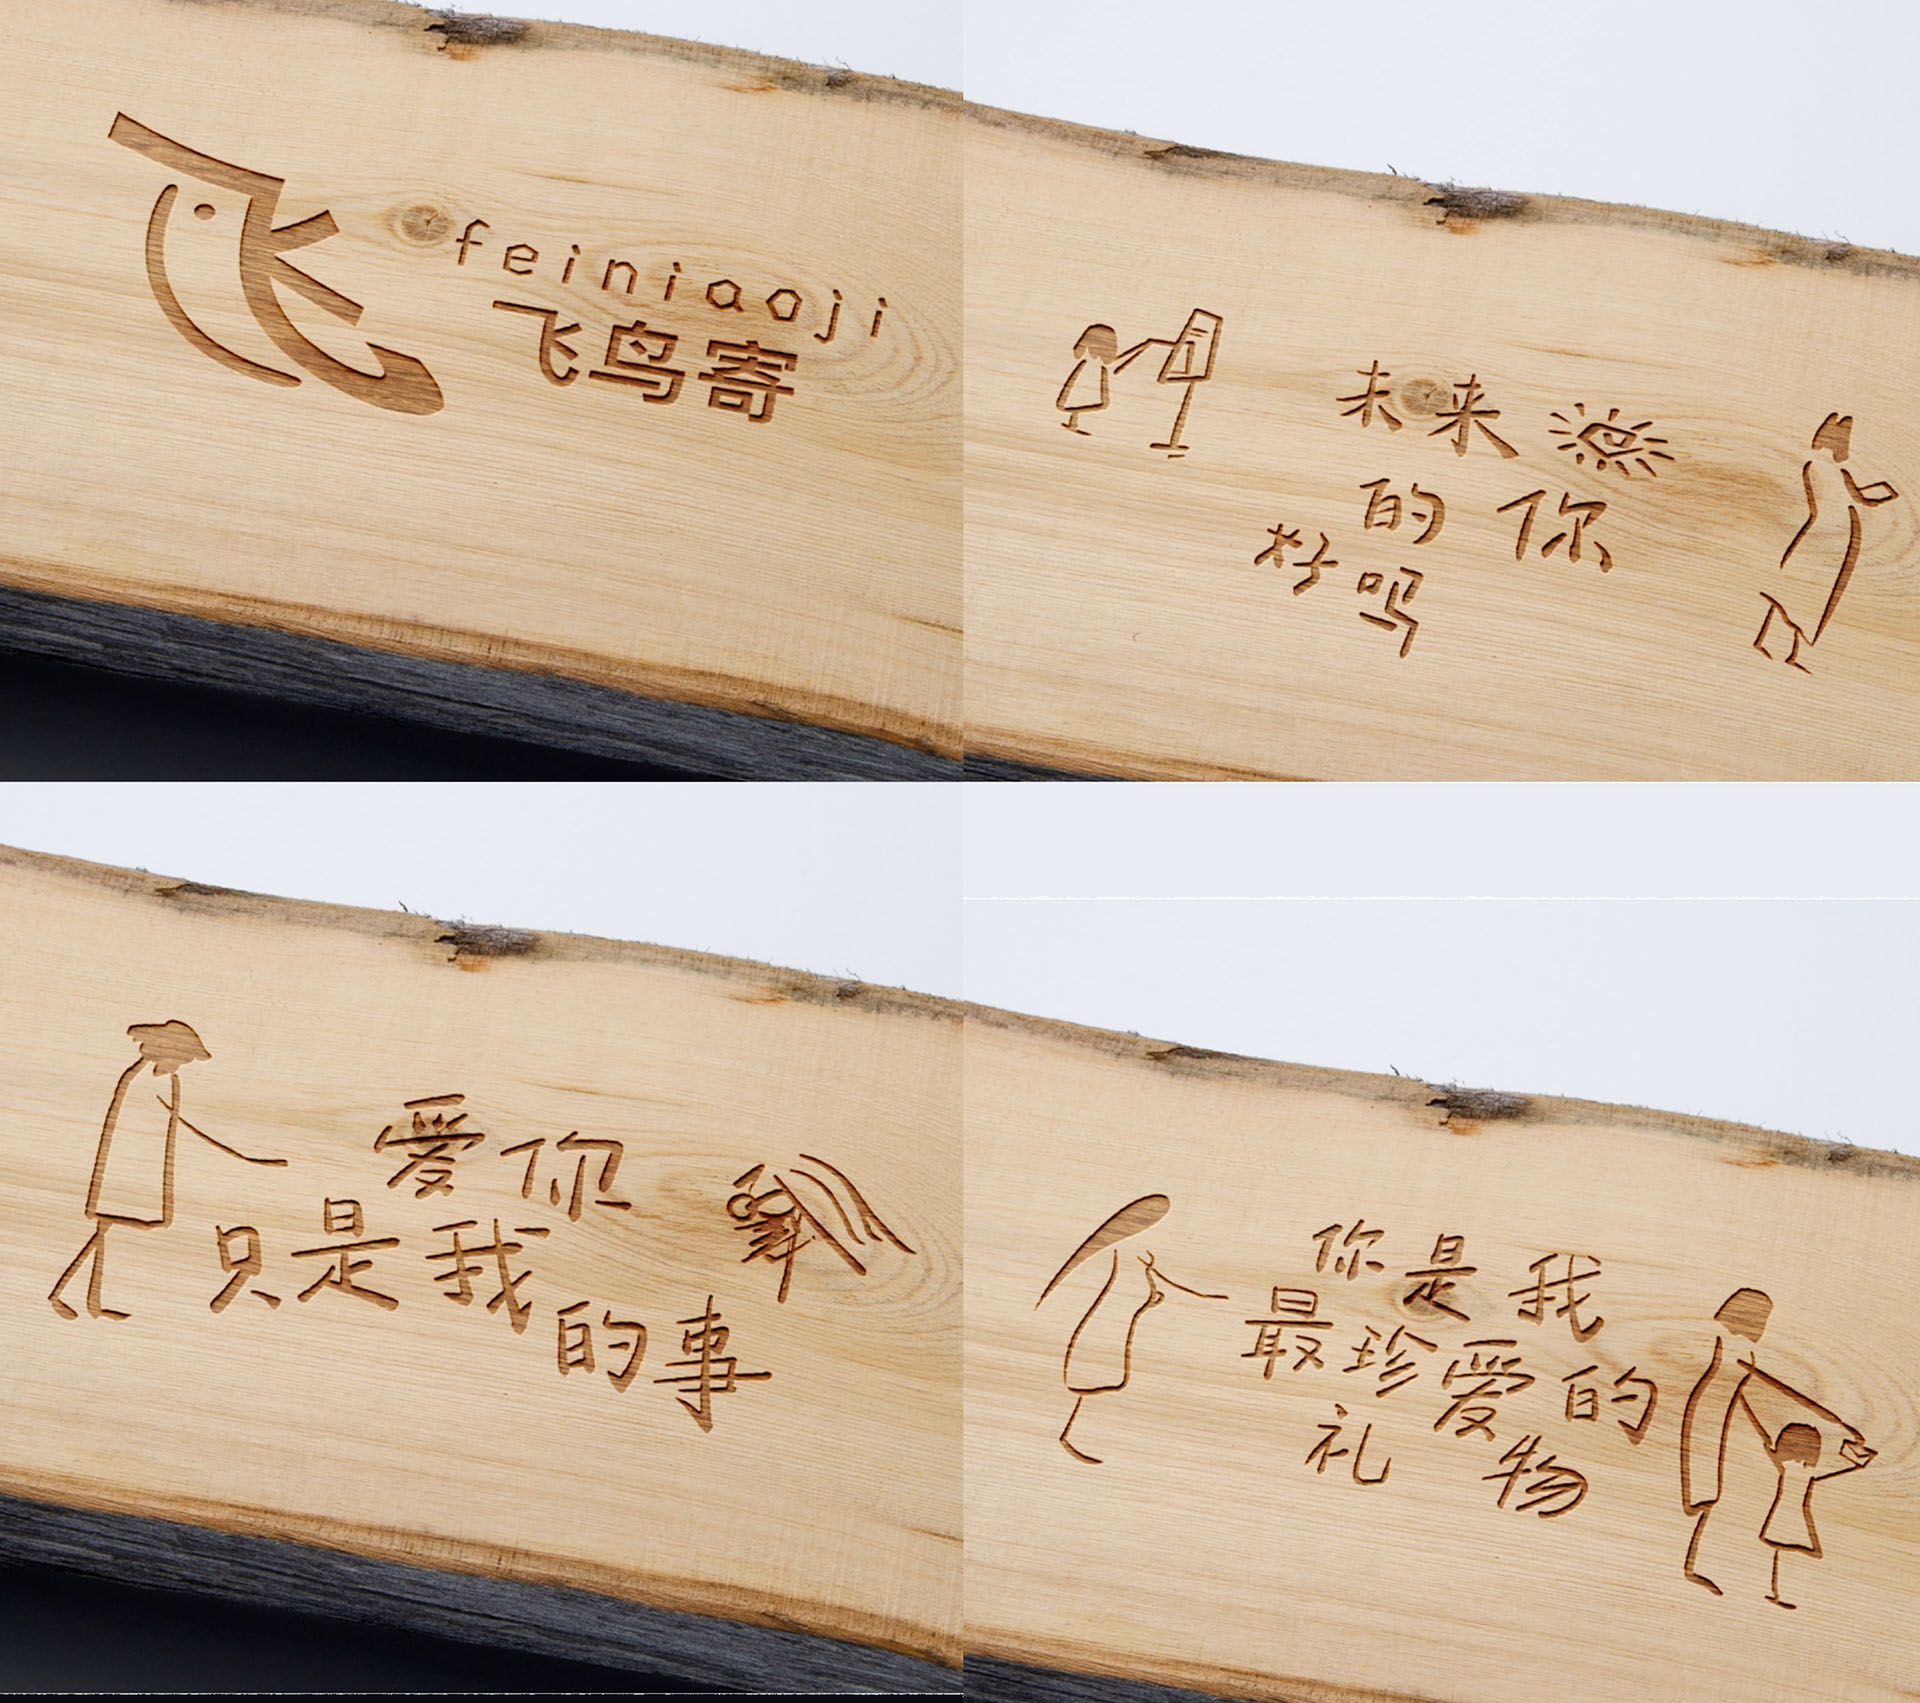 feiniaoji
飞鸟寄
未来
的你
好吗
爱你
只是我
的事
你是我
最珍爱的
礼物